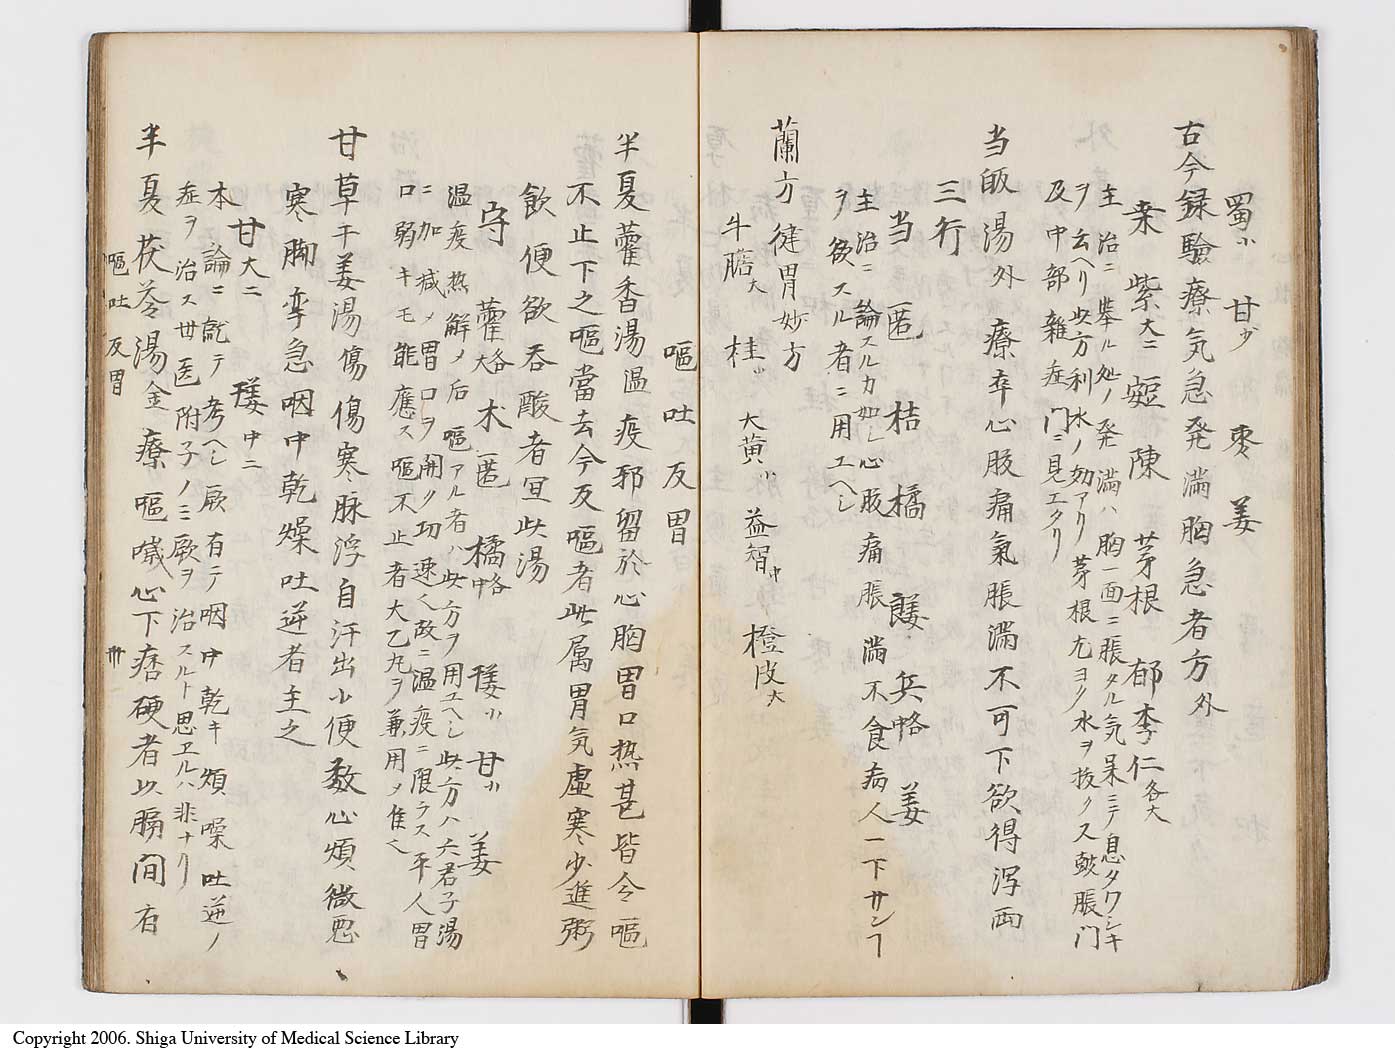 蜀小 甘少 棗 姜
古今録驗療気急発満胸急者方外
桒 紫大ニ 陳 茅根 郁李仁各大
主治ニ挙ル処ノ発満ハ胸一面ニ脹タル気呆ミテ息タワシキ
ヲ云ヘリ此方利水ノ効アリ茅根尤ヨク水ヲ抜クス鼓脹门
及中部雜症门ニ見エタリ
当皈湯外療卒心肢痛氣脹滿不可下欲得瀉両
三行
当 匿 桔 橘 兵略 姜
主治ニ論スルカ如シ心肢痛脹満不食病人一下サンㄱ
ヲ欲スル者ニ用エヘシ
蘭方健胃妙方
牛膽大 桂小 大黄小 益智中 橙皮大
嘔吐反胃
半夏藿香湯温疫邪留於心胸胃口热甚皆令嘔
不止下之嘔當去今反嘔者此属胃気虚寒少進粥
飲便欲吞酸者宜此湯
守 藿大各 术 匿 橘略 小 甘小 姜
温疫热解メ后嘔アル者ハ此方ヲ用エヘシ此方ハ六君子湯
ニ加减メ胃口ヲ開ク功速く故ニ温疫ニ限ラス平人胃
口弱キモ能應ス嘔不止者大乙丸ヲ兼用メ佳く
甘草干姜湯傷傷寒脉浮自汗出小便数心煩微悪
寒脚孪急咽中乾燥吐逆者主之
甘大ニ 中ニ
本論ニ就テ考ヘシ厥有テ咽中乾キ煩噪吐逆ノ
症ヲ治ス世医附子ノミ厥ヲ治スルト思エルハ非ナリ
半夏茯苓湯金療嘔噦心下痞硬者以膈間有
嘔吐反胃 卅
Copyright 2006. Shiga University of Medical Science Library